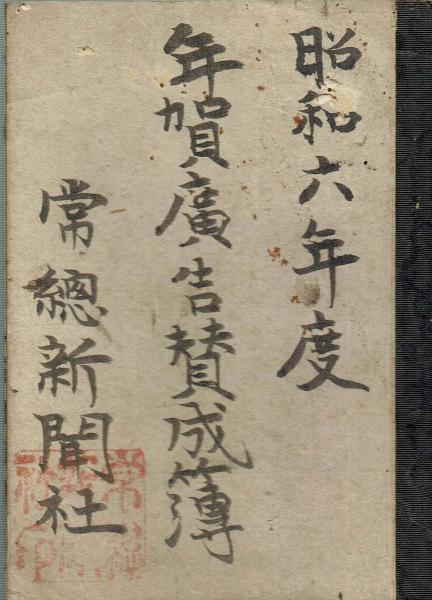 昭和六年度
年賀廣告賛成簿
常總新聞社